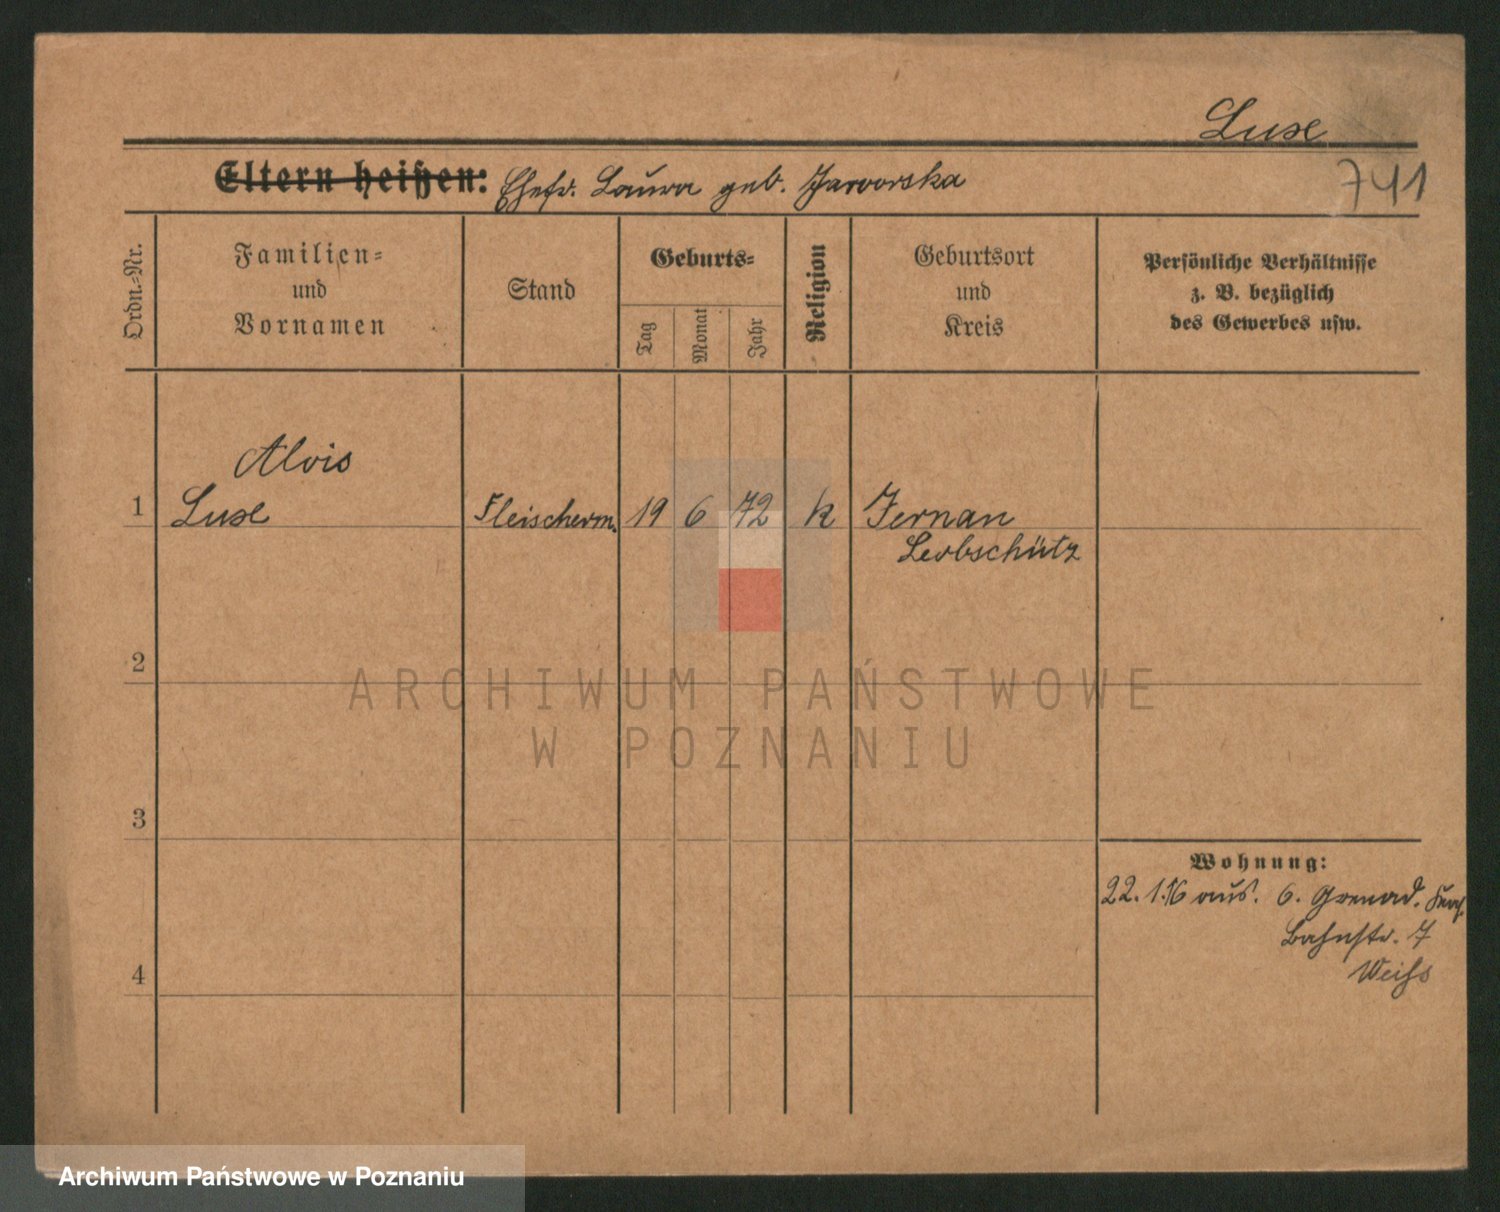 Luse
741
Eltern heißen: Ehefr. Laura geb. Jaworska
Ordn.-Nr.
Familien-
und
Vornamen
Stand
Geburts-
Tag
Monat
Jahr
Religion
Geburtsort
und
Kreis
Persönliche Verhältnisse
z. B. bezüglich
des Gewerbes usw.
Alois
1 Luse Fleischerm. 19 6 72 k Jernau
Leobschütz
2
ARCHIWUM PAŃSTWOWE
W POZNANIU
3
Wohnung:
22. 1. 16 aus. 6. Grenad.
Bahnstr. 7
4
Weiss
Archiwum Państwowe w Poznaniu